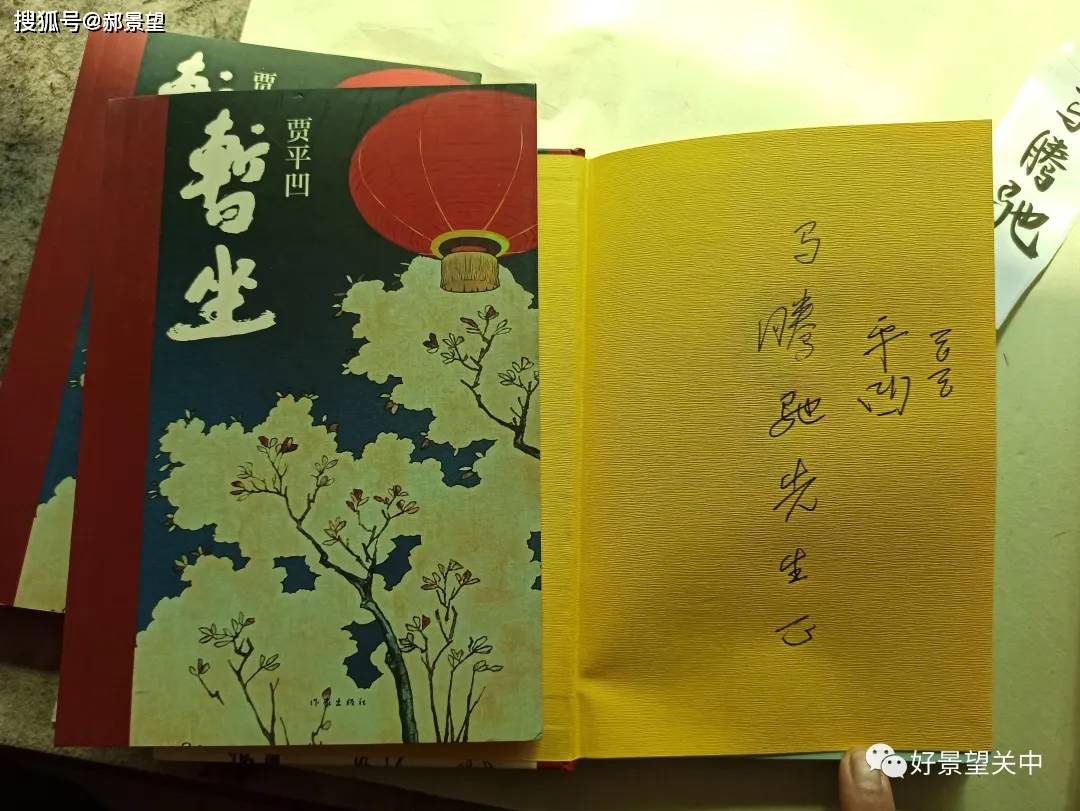 搜狐号@郝景望
贾
暂坐
贾平凹
作家出版社
马腾驰先生正
平凹
马腾驰
好景望关中